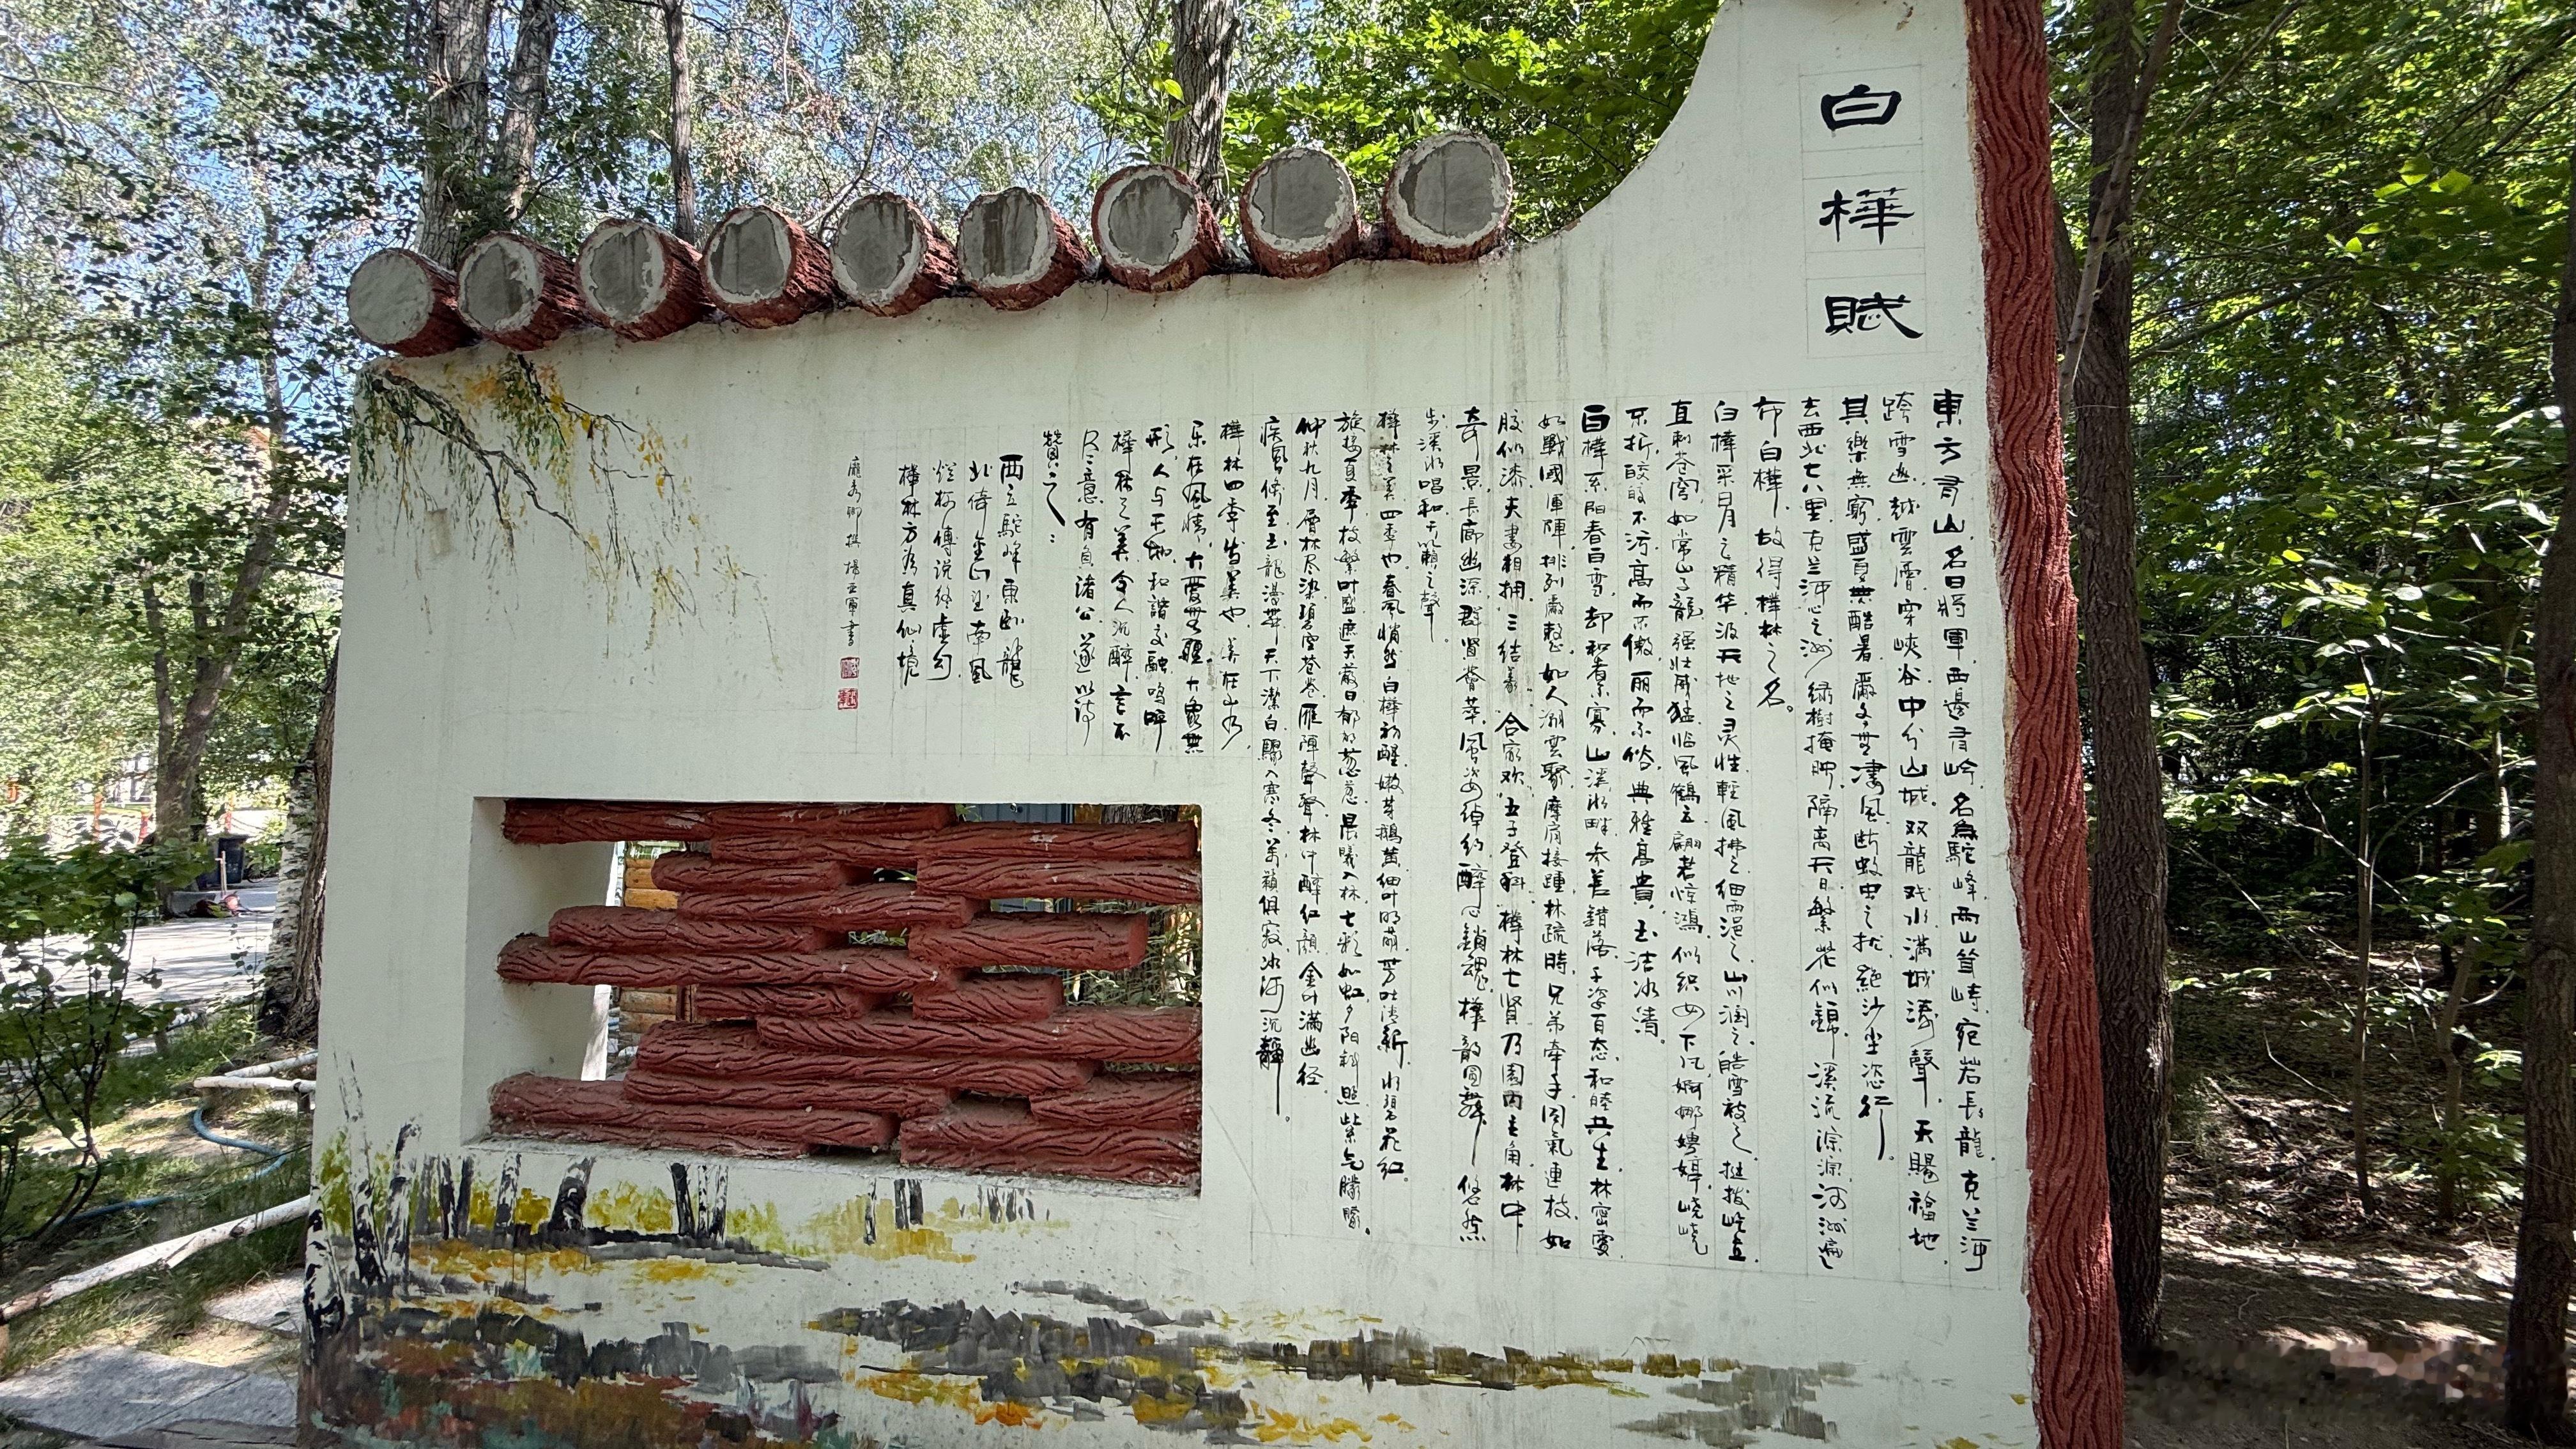 白樺賦
東方有山，名曰將軍，西邊有岭，名為駝峰，两山耸峙，宛若長龍，克兰河
跨雪山，越雲霄，穿峡谷，中分山城。双龍戏水，满城濤聲，天賜福地，
其樂無窮。盛夏無酷暑，嚴冬無凄风，断蚊虫之扰，絕沙尘恣行。
去西北七八里，克兰河心之洲，绿樹掩映，隔离天日，繁花似錦，溪流淙淙，河洲遍
布白樺，故得樺林之名。
白樺采日月之精华，汲天地之灵性，輕風拂之，细雨浥之，山川润之，皓雪被之，挺拔屹立，
直刺苍穹，如常山子龍，强壮威猛，临风鶴立，翩若惊鴻，似织女下凡，婀娜娉婷，峣峣
不折，皎皎不污，高而不傲，丽而不俗，典雅高貴，玉洁冰清。
白樺系阳春白雪，却和素寡，山溪水畔，参差錯落，千姿百态，和睦共生，林密處
如戰國軍陣，排列嚴整，如人潮雲聚，摩肩接踵，林疏時，兄弟牵手，同氣連枝，如
胶似漆，夫妻相拥，三结義，合家欢，五子登科，樺林七贤乃園内主角，林中
奇景，長廊幽深，群賢薈萃，風姿绰约，醉心銷魂，樺韵圓舞，悠然
步，溪水唱和，天籁之聲。
樺林之美，四季也。春風悄然，白樺初醒，嫩芽鵝黄，细叶明萌，芳吐清新，水碧花红。
旋接夏季，枝繁叶盛，遮天蔽日，郁郁葱葱，晨曦入林，七彩如虹，夕阳斜照，紫气朦朦。
仲秋九月，層林尽染，碧空苍苍，雁陣聲聲，林中醉红顏，金叶满幽径。
疾風倏至，玉龍漫舞，天下潔白，驟入寒冬，萬籟俱寂，冰河沉靜。
樺林四季皆美也，美在山水，
乐在风情，大愛無疆，大象無
形，人与天地，和諧交融，嗚呼
樺林之美，令人沉醉，言不
尽意，有負諸公，遂以诗
贊之：
西立駝峰東卧龍
北倚金山迎南風
烂柯傳说终虚幻
樺林方為真仙境
龐秀卿撰 楊亚軍書